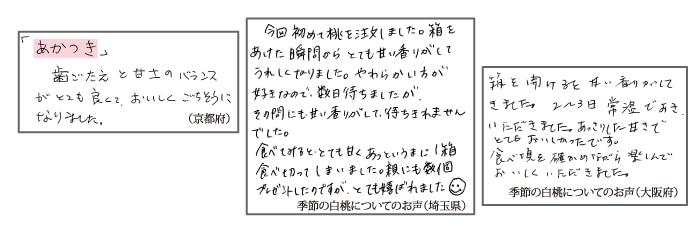 「あかつき」
歯ごたえと甘さのバランス
がとても良くて、おいしくごちそうに
なりました。
(京都府)
今回初めて桃を注文しました。箱を
あけた瞬間からとても甘い香りがして
うれしくなりました。やわらかい方が
好きなので、数日待ちましたが、
その間にも甘い香りがして、待ちきれません
でした。
食べてみると、とても甘くあっというまに1箱
食べ切ってしまいました。親にも数個
プレゼントしたのですが、とても喜ばれました
季節の白桃についてのお声(埼玉県)
箱を開けると甘い香りがして
きました。2〜3日常温でおき、
いただきました。あっさりした甘さで
とてもおいしかったです。
食べ頃を確かめながら楽しんで
おいしくいただきました。
季節の白桃についてのお声(大阪府)